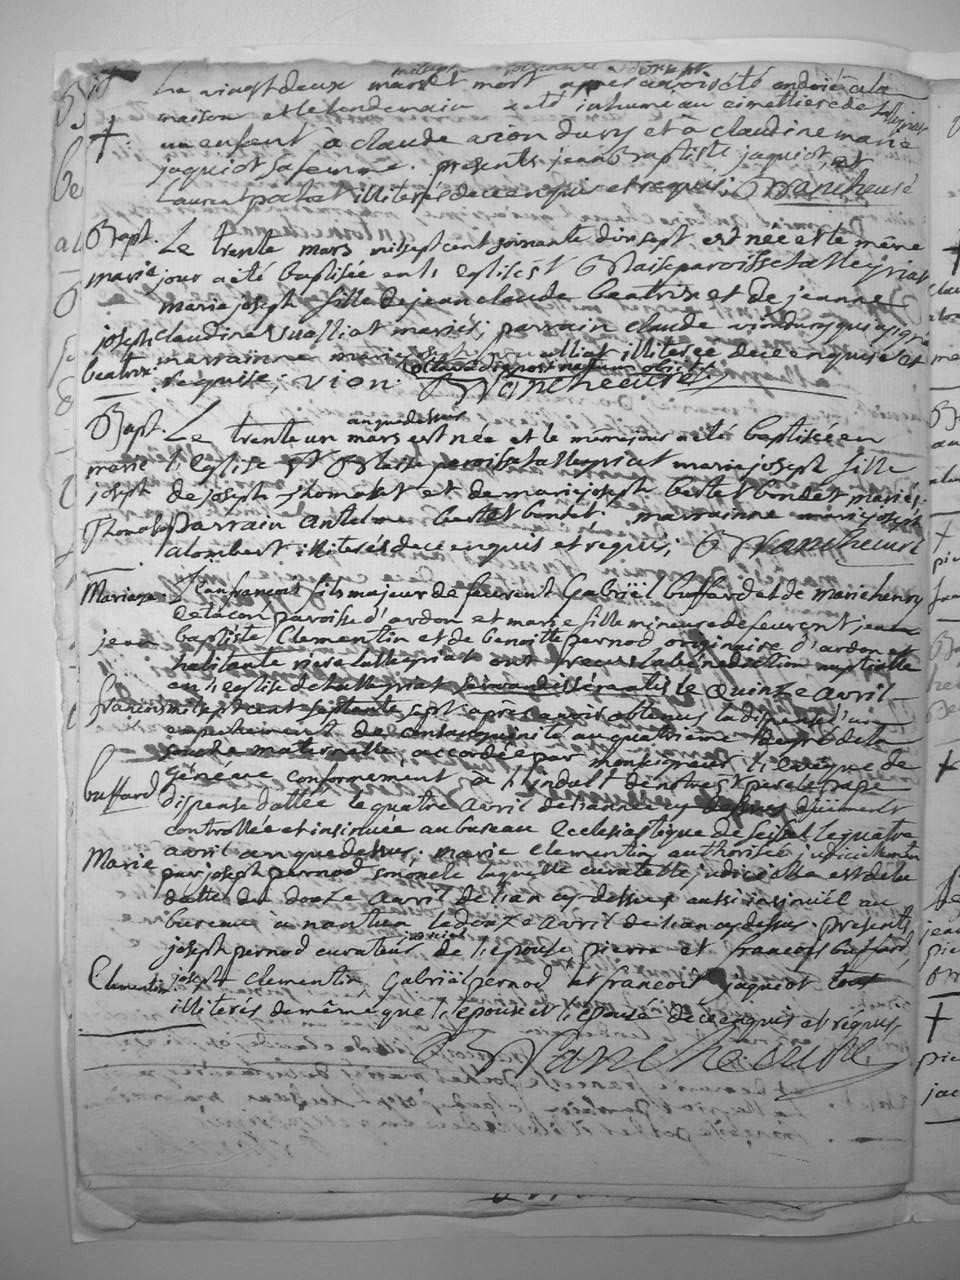 Le vingt deux mars est mort apres avoir été ondoié a la
maison et le lendemain a été inhumé au cimettiere de talleyriat
un enfent à claude vion dury et à claudine marie
jaquiot sa femme. presents jean Baptiste jaquiot, et
Laurent pochat illiterés de ce enquis et requis; Blancheure
Bapt. Le trente mars mil sept cent soixante dix sept est née et le même
marie jour a été baptisée en l'eglise st Blaise paroisse talleyriat
marie joseph fille de jean claude beatrix et de jeanne
joseph claudine Vualliat mariés; parrain claude vion dury qui a signé
beatrix marrainne marie illiterée de ce enquise et
requise; vion. Blancheure
an que dessus
Bapt. Le trente un mars est née et le même jour a été baptisée en
marie l'eglise st Blaise paroisse talleyriat marie joseph fille
joseph de joseph thomasset et de marie joseph bertet bondet mariés.
parrain antelme bertet bondet marrainne marie joseph
alombert illiterés de ce enquis et requis; Blancheure
Mariage. jean francois fils majeur de feu rent Gabriël buffard et de marie henry
de lacon paroisse d'ardon et marie fille mineure de feu rent jean
jean baptiste Clementin et de benoitte pernod originaire d'ardon et
habitante riere talleyriat ont reçeus la bénédiction nuptialle
en l'eglise de talleyriat le quinze avril
francois mil sept cent soixante sept après avoir obtenus la dispense d'un
empechement de consanguinité au quatrieme degré de la
souche maternelle, accordée par monseigneur l'evêque de
buffard Généve conformement à l'indult de notre st pere le pape
dispense dattée le quatre avril de l'année cy dessus düement
controllée et insinuée au bureau Ecclesiastique de seissel le quatre
avril an que dessus; marie Clementin authorisée judiciellement
Marie par joseph pernod son oncle laquelle curatelle judicielle est de la
datte du douze avril de l'an cy-dessus aussi insinuée au
bureau à nantua le douze avril de l'an cy dessus. presents
joseph pernod curateur de l'epouse, pierre et francois buffard,
Clementin joseph Clementin, Gabriël pernod et francois jaquiot tous
illiterés de même que l'epoux et l'epouse de ce enquis et requis
Blancheure